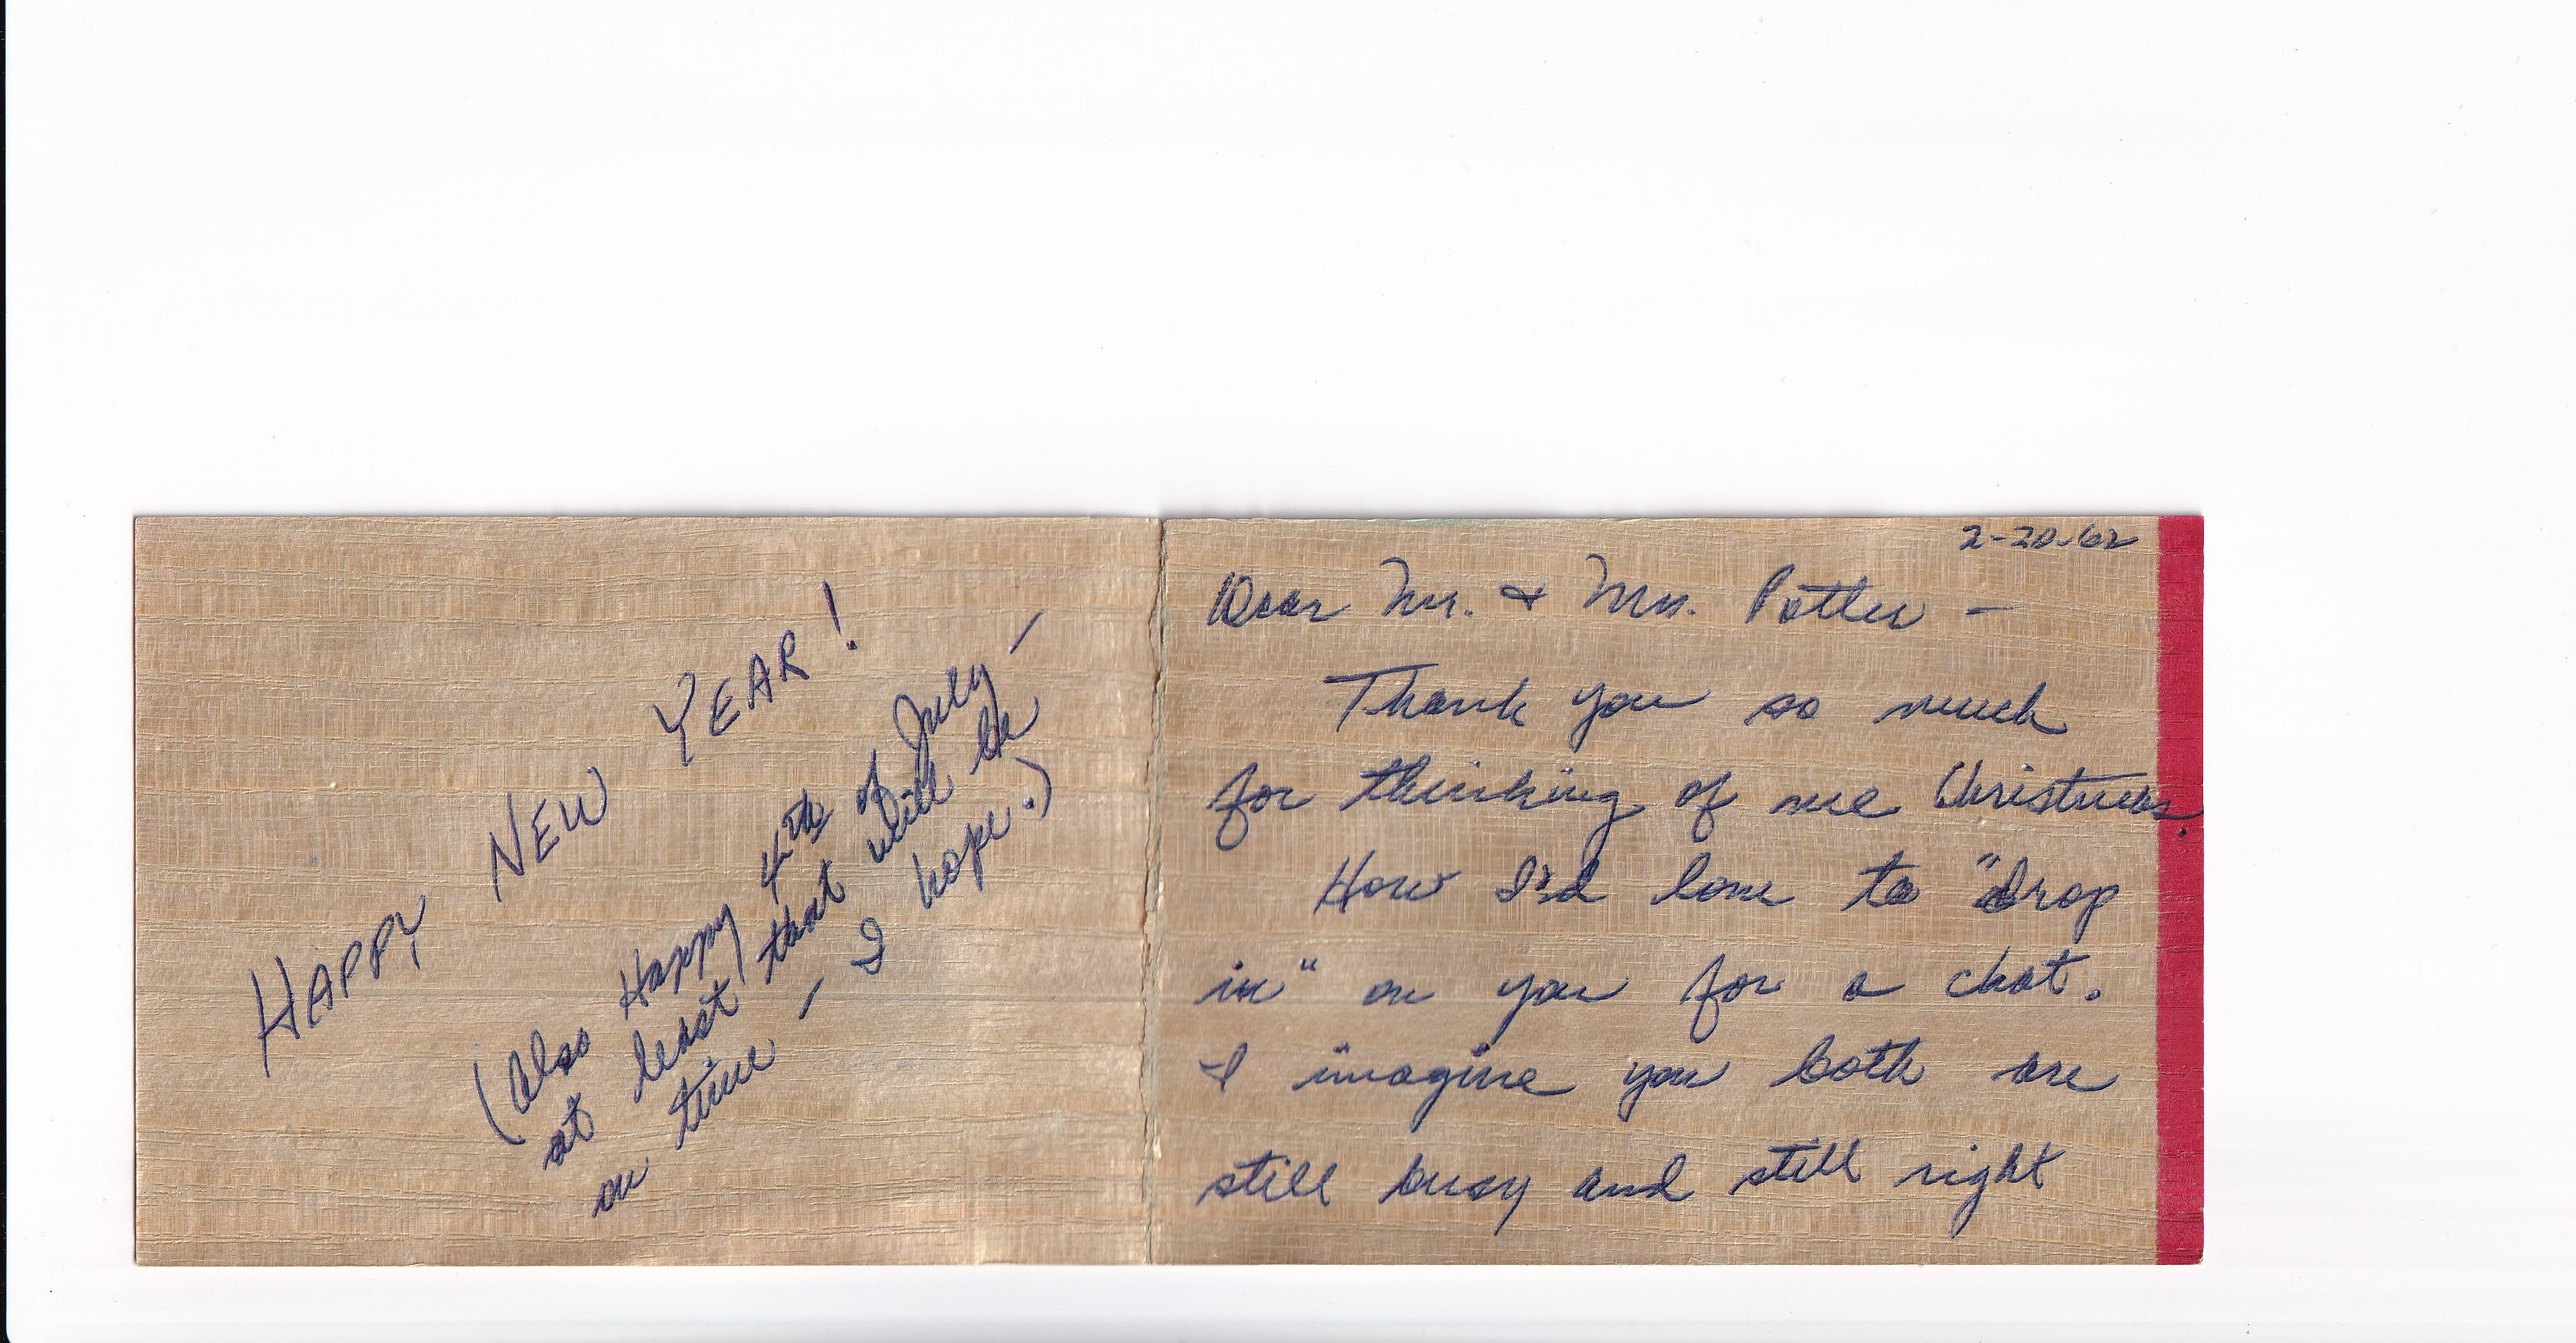 HAPPY NEW YEAR!
(Also Happy 4th of July –
at least that will be
on time – I hope.)
2-20-62
Dear Mr. & Mrs. Potter –
Thank you so much
for thinking of me Christmas.
How I'd love to "drop
in" on you for a chat.
I imagine you both are
still busy and still right